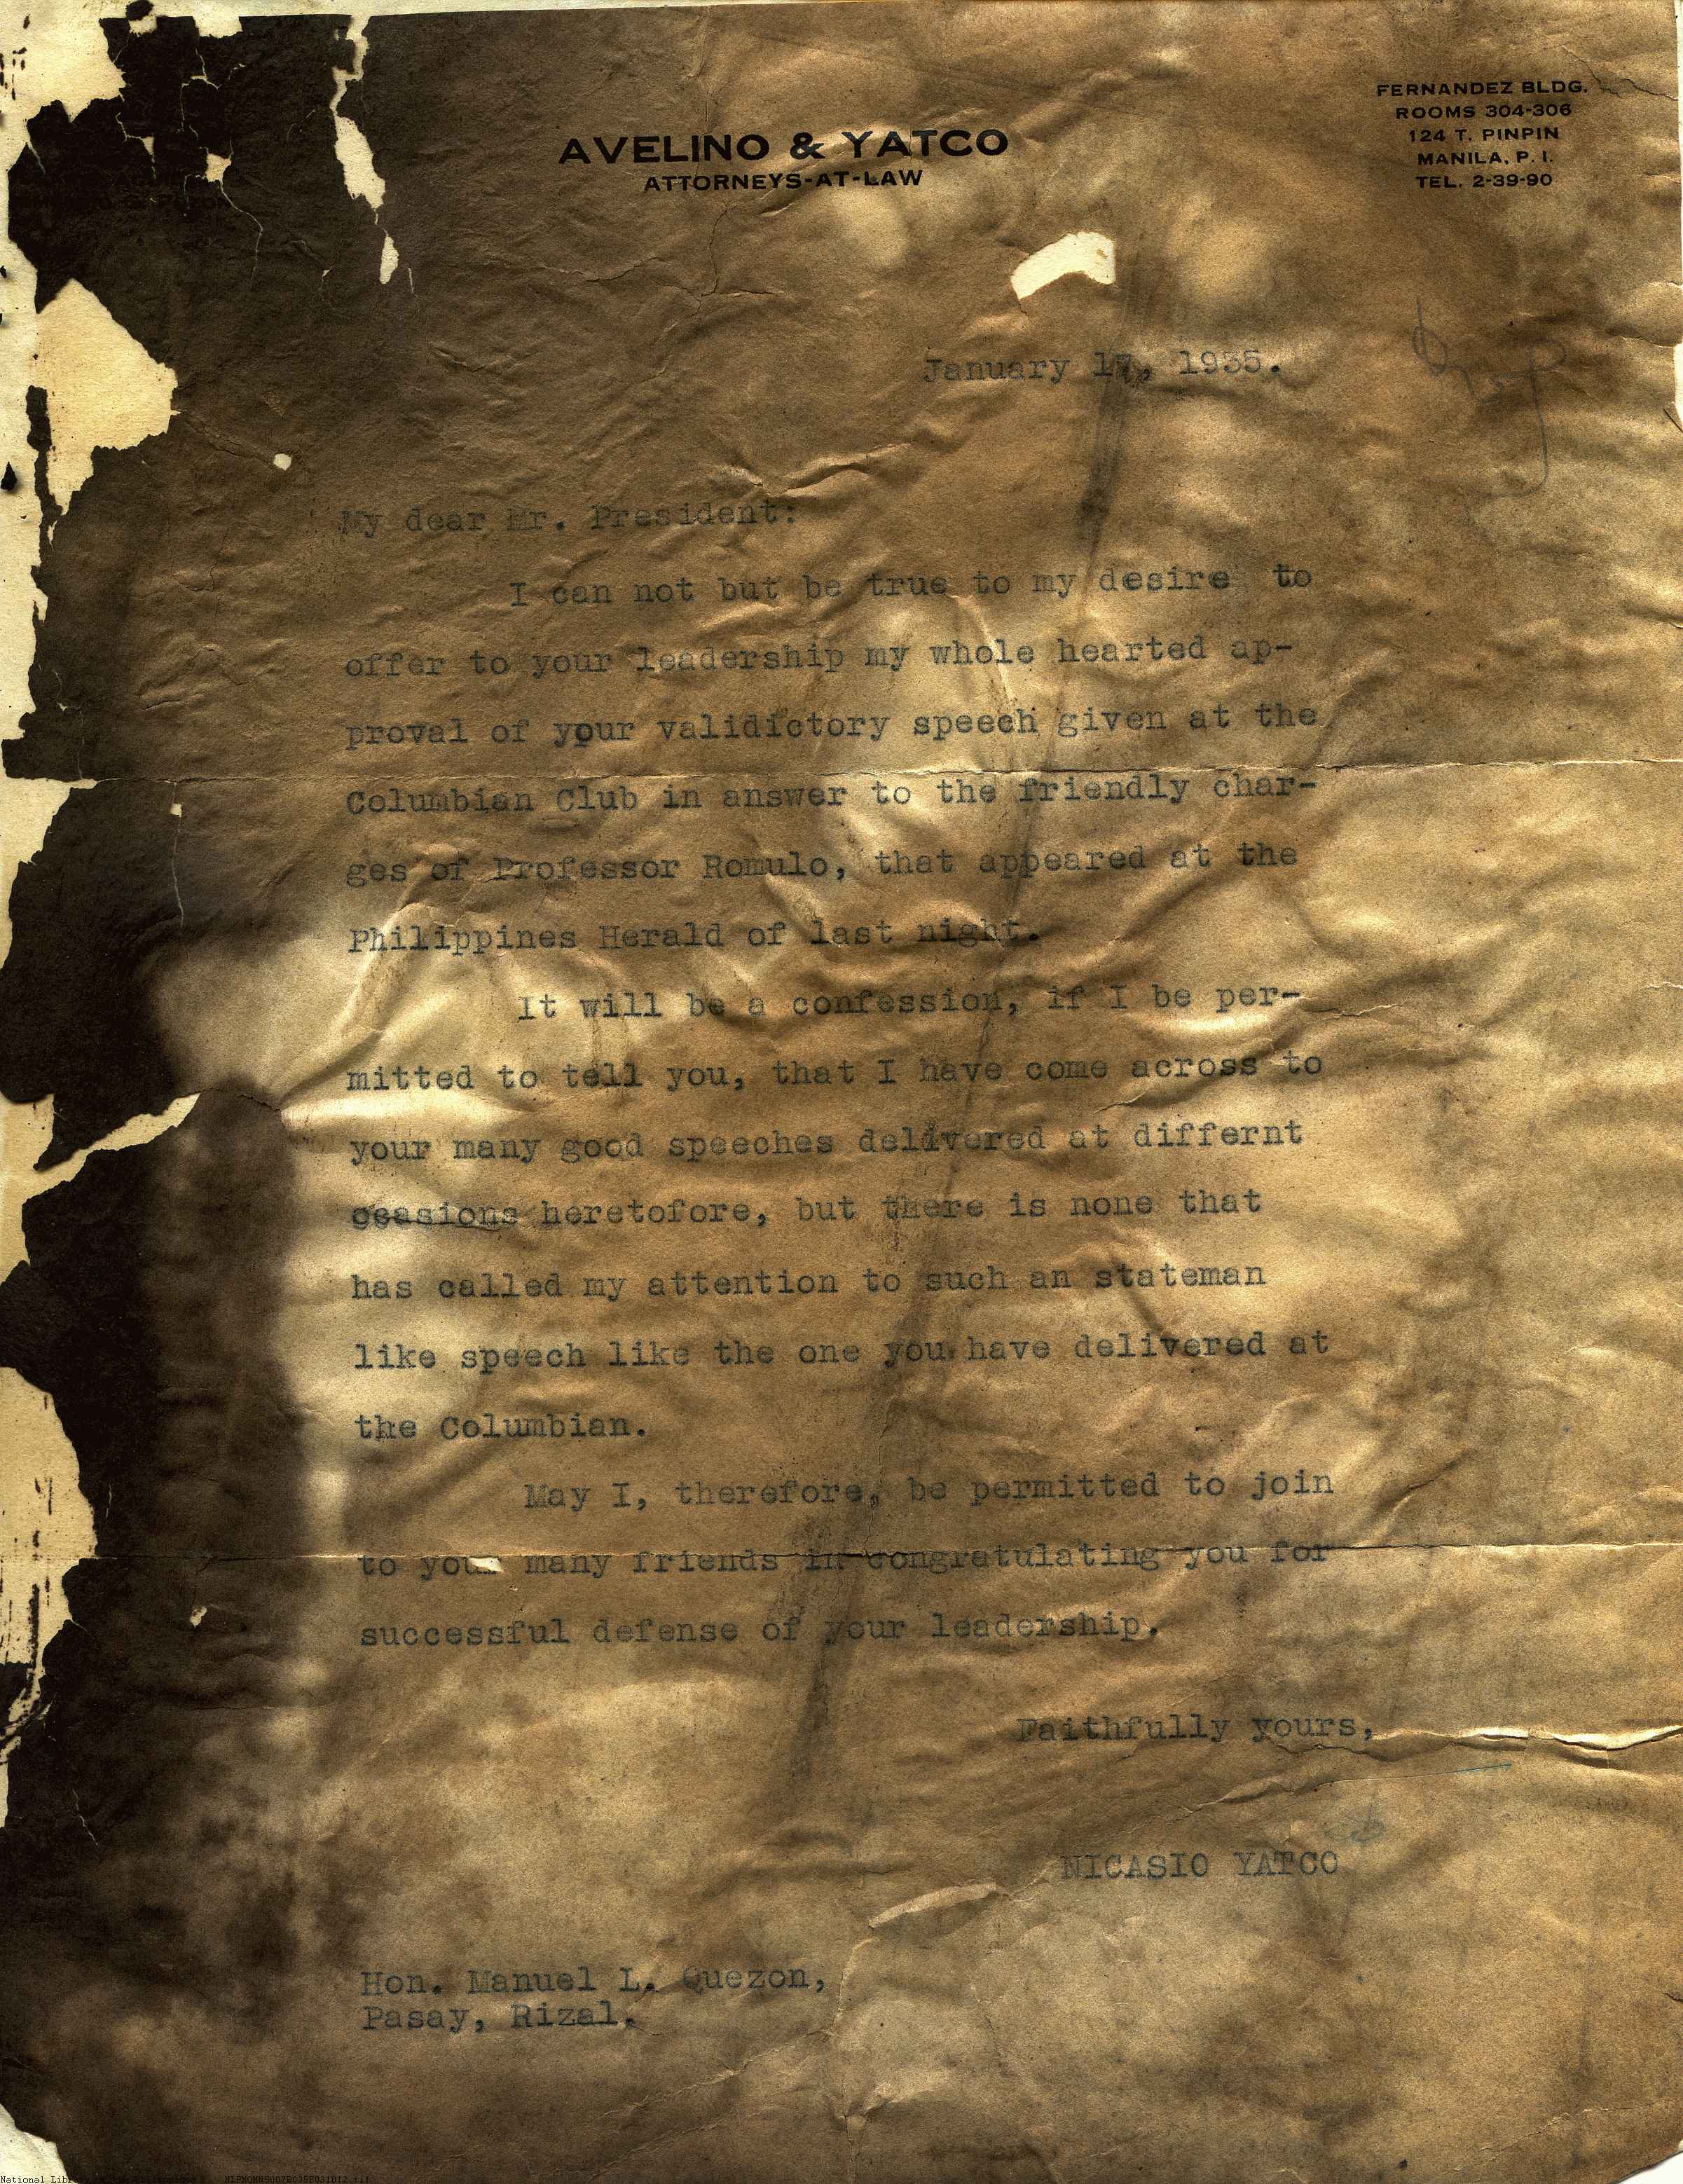 FERNANDEZ BLDG.
ROOMS 304-306
124 T. PINPIN
MANILA, P. I.
TEL. 2-39-90
AVELINO & YATCO
ATTORNEYS-AT-LAW
January 17, 1935.
My dear Mr. President:
I can not but be true to my desire to
offer to your leadership my whole hearted ap-
proval of your validictory speech given at the
Columbian Club in answer to the friendly char-
ges of Professor Romulo, that appeared at the
Philippines Herald of last night.
It will be a confession, if I be per-
mitted to tell you, that I have come across to
your many good speeches delivered at differnt
ocasions heretofore, but there is none that
has called my attention to such an stateman
like speech like the one you have delivered at
the Columbian.
May I, therefore, be permitted to join
to your many friends in congratulating you for
successful defense of your leadership.
Faithfully yours,
NICASIO YATCO
Hon. Manuel L. Quezon,
Pasay, Rizal.
National